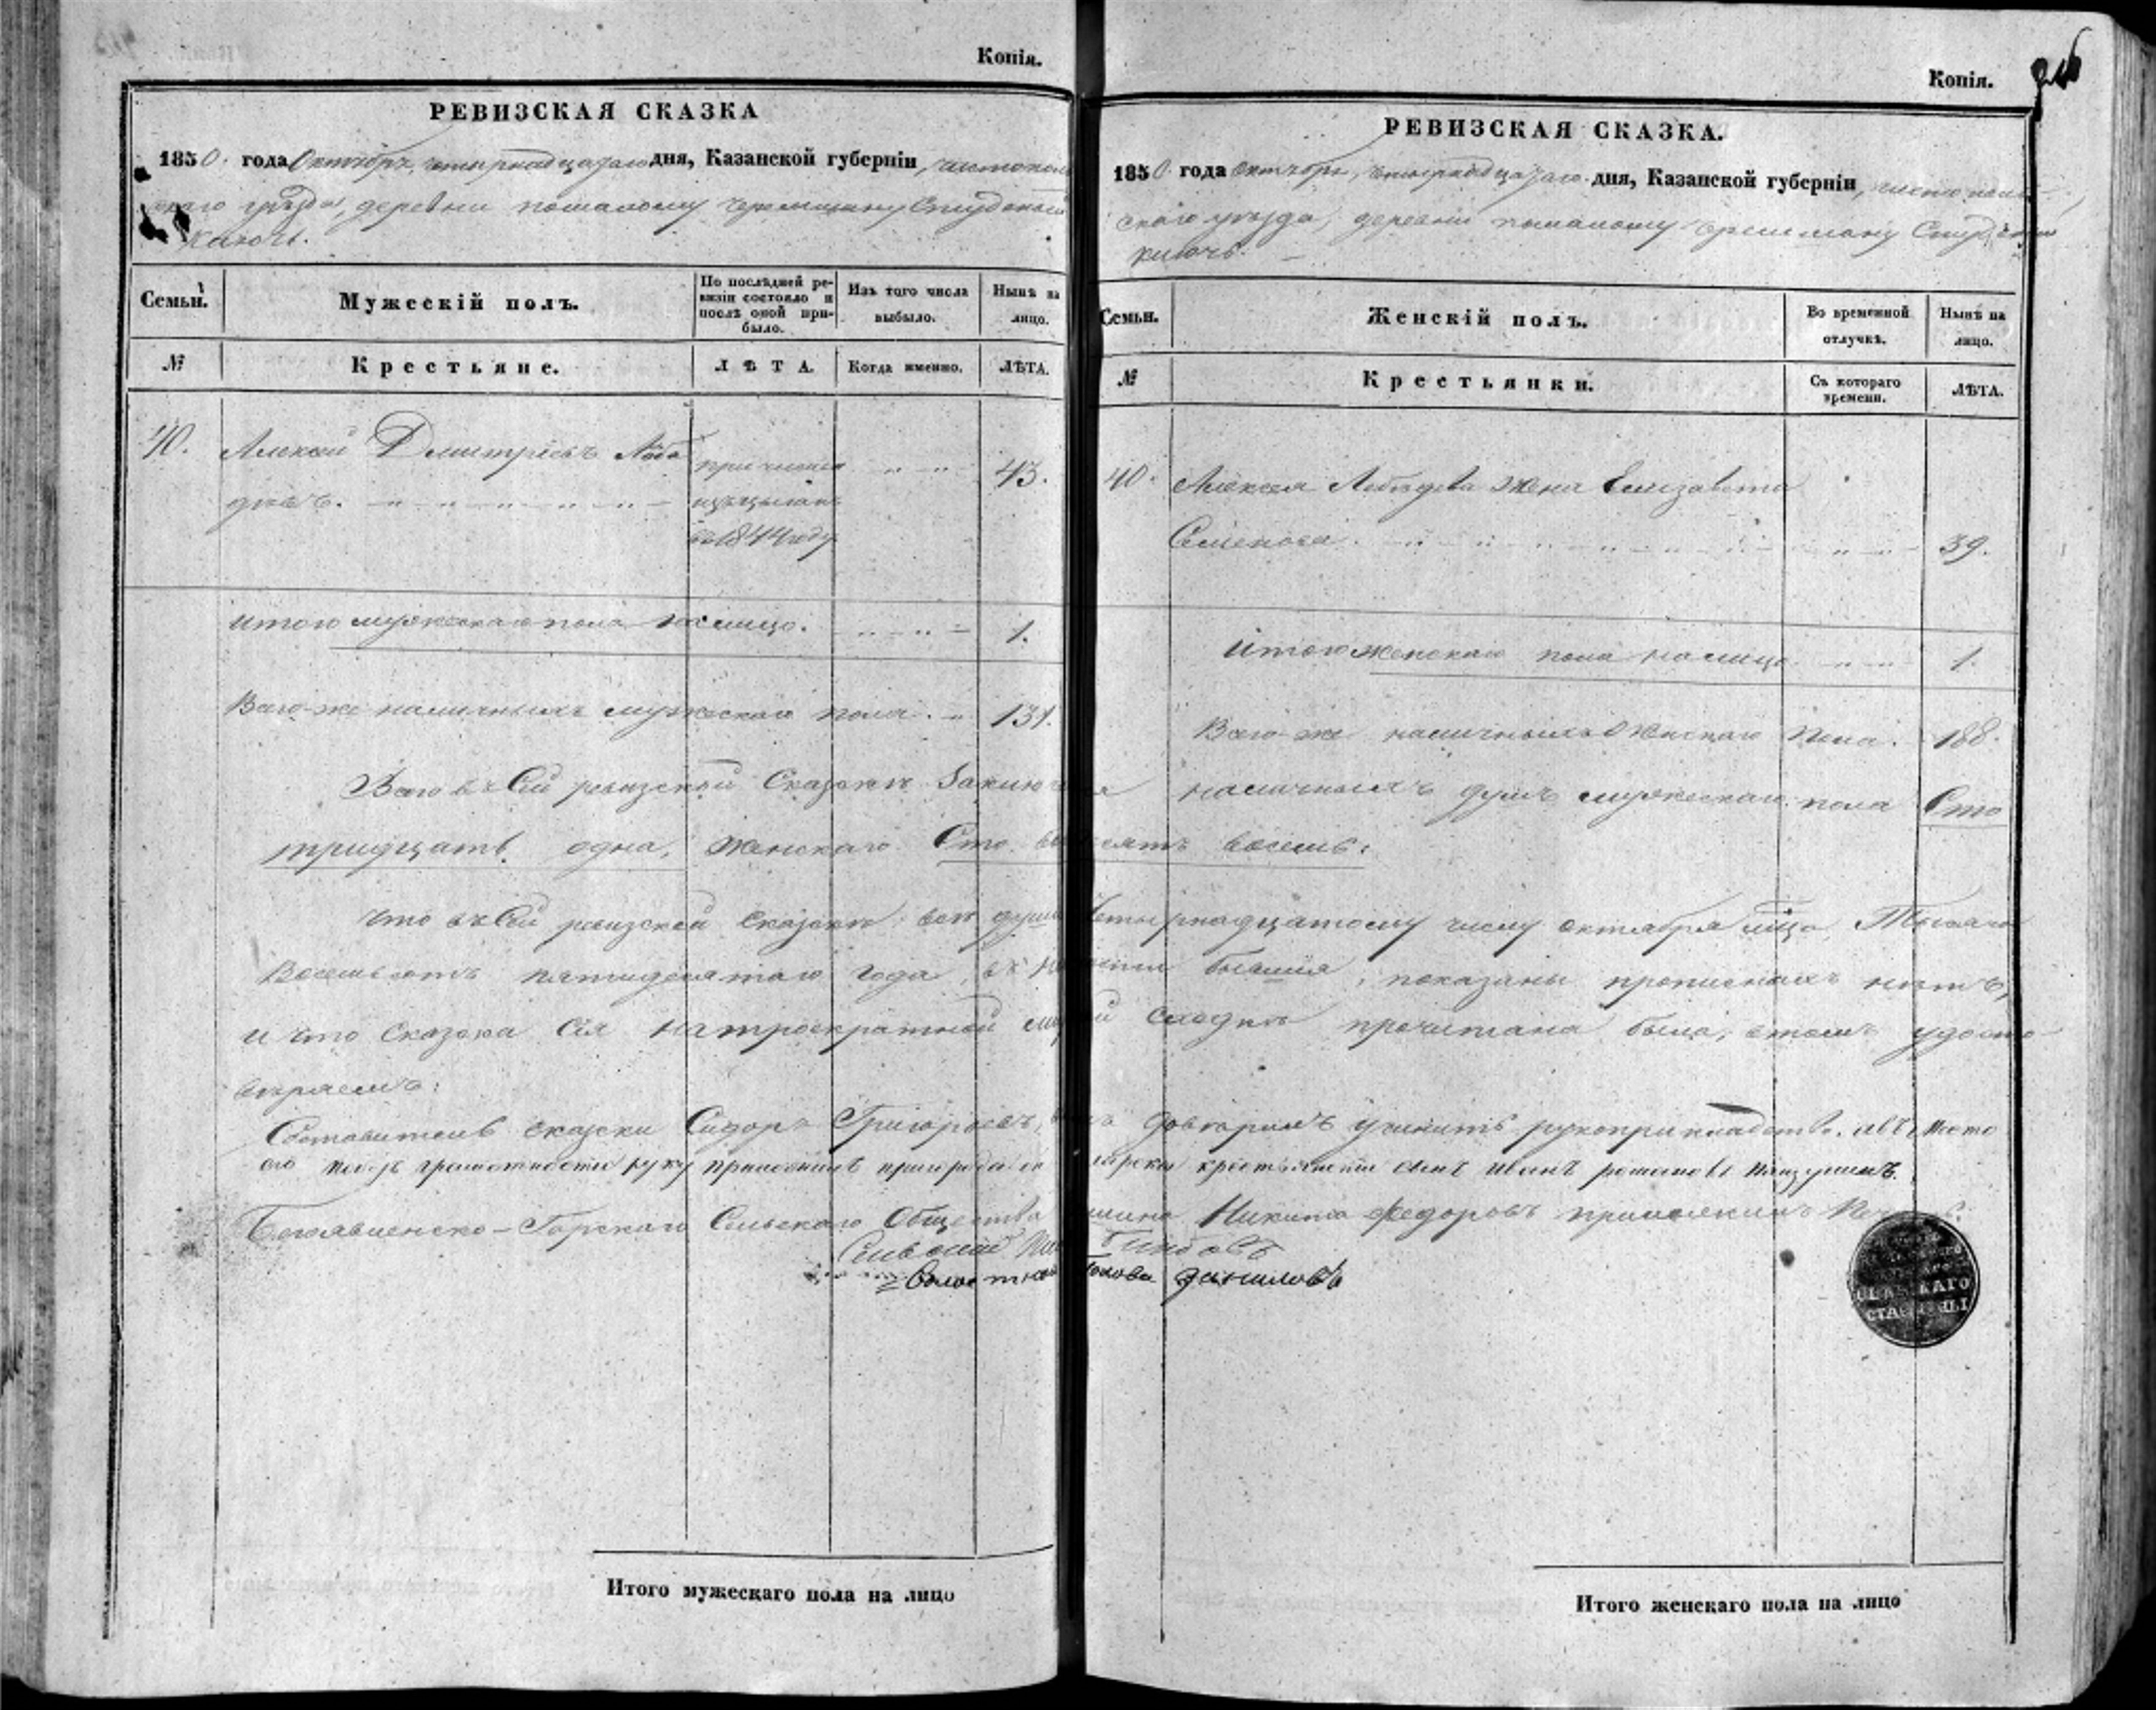 Копія.
РЕВИЗСКАЯ СКАЗКА
1850. года Октября, четырнадцатаго дня, Казанской губерніи, чистополь
скаго уѣзда, деревни помалому черемшану Студеный
Ключъ.
Семьи. Мужескій полъ. По послѣдней ревизіи состояло и послѣ оной прибыло. Изъ того числа выбыло. Нынѣ на лицо.
№ Крестьяне. ЛѢТА. Когда именно. ЛѢТА.
40. Алексей Дмитріевъ Лебе причисленъ " " 43.
девъ. изъ цыганъ
въ 1844 году
итого мужескаго пола на лицо. " " 1.
Всего-же наличныхъ мужескаго пола. " 131.
Копія.
РЕВИЗСКАЯ СКАЗКА.
1850 года октября, четырнадцатаго дня, Казанской губерніи, чистополь
скаго уѣзда, деревни помалому черемшану
ключъ.
Семьи. Женскій полъ. Во временной отлучкѣ. Нынѣ на лицо.
№ Крестьянки. Съ котораго времени. ЛѢТА.
40. Алексея Лебедева жена Елизавета
Семенова. " " 39.
Итого женскаго пола на лицо " " 1.
Всего-же наличныхъ женскаго пола. 188.
Всего въ Сей ревизской Сказкѣ Заключается наличныхъ душъ мужескаго пола Сто
тридцать одна, женскаго Сто восемъ:
Что въ Сей ревизской сказкѣ всѣ души четырнадцатому числу октября мѣсяца Тысяча
Восемьсотъ пятидесятаго года, въ бывшія, показаны прописныхъ нѣтъ,
и что Сказка Сія на троекратной сходкѣ прочитана была, въ томъ удосто
вѣряемъ:
Составитель сказки Сидоръ Григорьевъ, довѣрилъ учинить рукоприкладство, а вмѣсто
его руку приложилъ крестьянской сынъ иванъ романовъ
Богоявленско-Горскаго Сельскаго Общества Никита Федоровъ приложилъ Печать.
Сельской
Волостной голова Даниловъ
СКАГО
СТАРШИНЫ
Итого мужескаго пола на лицо
Итого женскаго пола на лицо